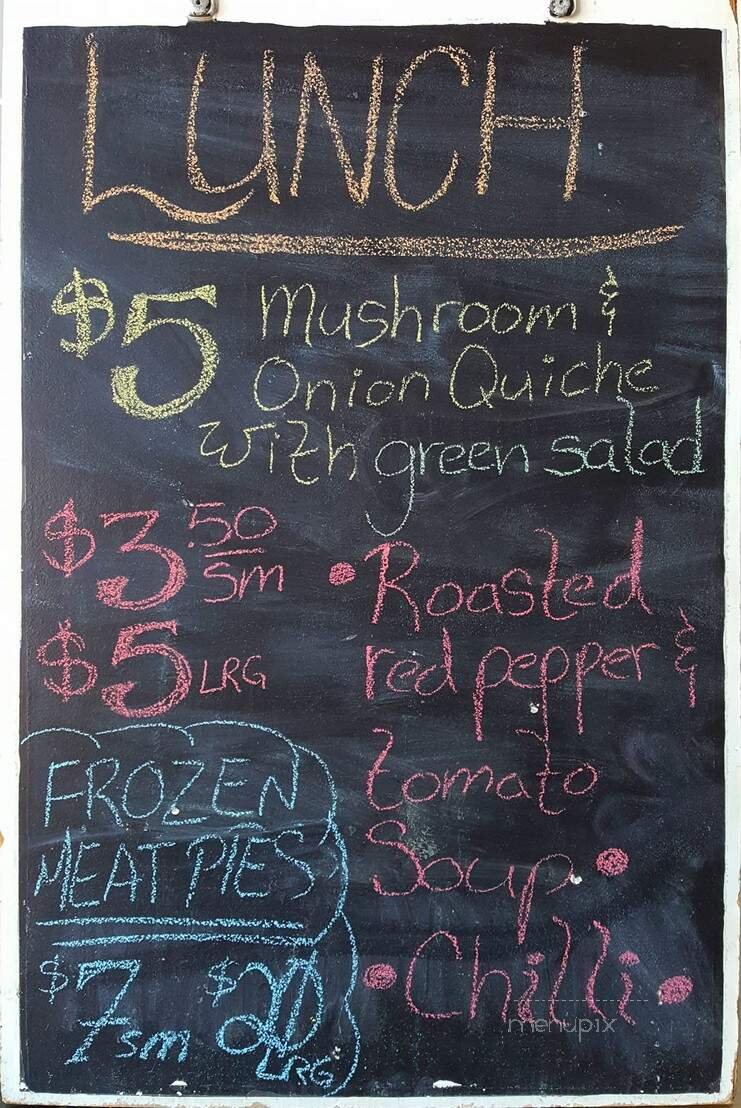 LUNCH
$5 Mushroom &
Onion Quiche
with green salad
$3.50 sm
$5 LRG
• Roasted
red pepper &
tomato
Soup •
• Chilli •
FROZEN
MEAT PIES
$7 sm $20 LRG
menupix